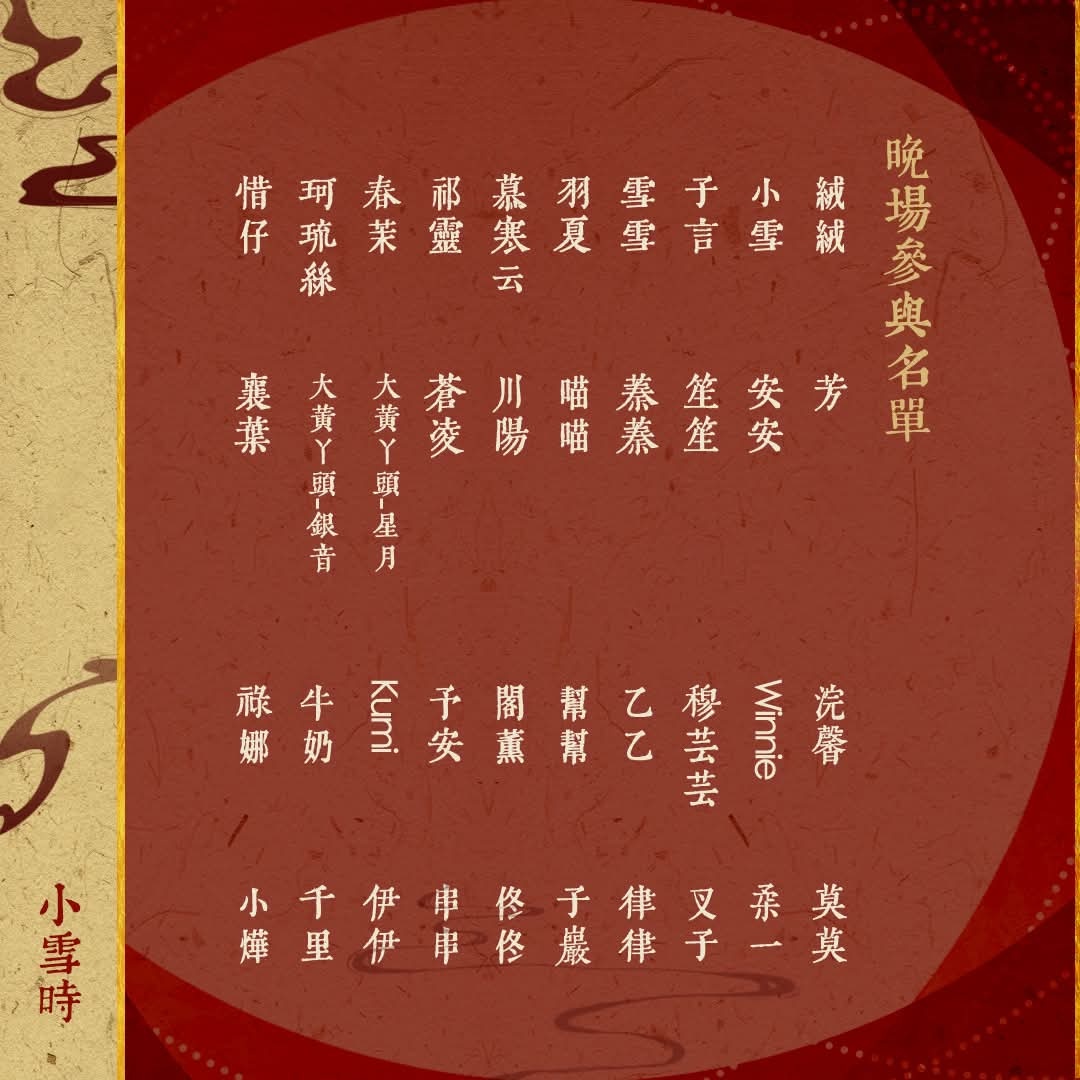 晚場參與名單
絨絨
小雪
子言
雪雪
羽夏
慕寒云
祁靈
春茉
珂琉絲
惜仔
芳
安安
笙笙
蓁蓁
喵喵
川陽
蒼凌
大黃丫頭-星月
大黃丫頭-銀音
襄葉
浣馨
Winnie
穆芸芸
乙乙
幫幫
閣薰
予安
Kumi
牛奶
祿娜
莫莫
柔一
叉子
律律
子巖
佟佟
串串
伊伊
千里
小燁
小雪時